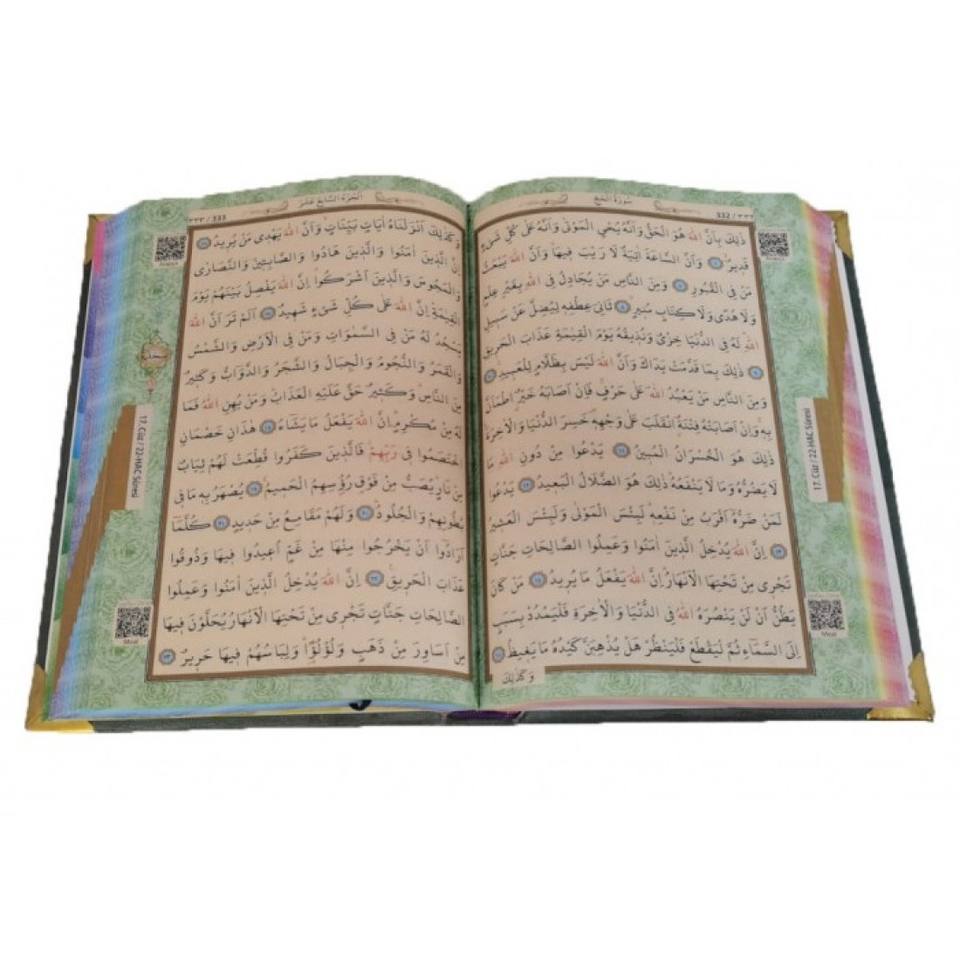 332 / ٣٣٢
سُورَةُ الْحَجِّ
ذٰلِكَ بِاَنَّ اللّٰهَ هُوَ الْحَقُّ وَاَنَّهُ يُحْيِ الْمَوْتٰى وَاَنَّهُ عَلٰى كُلِّ شَيْءٍ
قَدِيرٌ ٦ وَاَنَّ السَّاعَةَ اٰتِيَةٌ لَا رَيْبَ فِيهَا وَاَنَّ اللّٰهَ يَبْعَثُ
مَنْ فِي الْقُبُورِ ٧ وَمِنَ النَّاسِ مَنْ يُجَادِلُ فِي اللّٰهِ بِغَيْرِ عِلْمٍ
وَلَا هُدًى وَلَا كِتَابٍ مُنِيرٍ ٨ ثَانِيَ عِطْفِهِ لِيُضِلَّ عَنْ سَبِيلِ
اللّٰهِ لَهُ فِي الدُّنْيَا خِزْيٌ وَنُذِيقُهُ يَوْمَ الْقِيٰمَةِ عَذَابَ الْحَرِيقِ
٩ ذٰلِكَ بِمَا قَدَّمَتْ يَدَاكَ وَاَنَّ اللّٰهَ لَيْسَ بِظَلَّامٍ لِلْعَبِيدِ ١٠
وَمِنَ النَّاسِ مَنْ يَعْبُدُ اللّٰهَ عَلٰى حَرْفٍ فَاِنْ اَصَابَهُ خَيْرٌ اطْمَاَنَّ
بِهِ وَاِنْ اَصَابَتْهُ فِتْنَةٌ انْقَلَبَ عَلٰى وَجْهِهِ خَسِرَ الدُّنْيَا وَالْاٰخِرَةَ
ذٰلِكَ هُوَ الْخُسْرَانُ الْمُبِينُ ١١ يَدْعُوا مِنْ دُونِ اللّٰهِ مَا
لَا يَضُرُّهُ وَمَا لَا يَنْفَعُهُ ذٰلِكَ هُوَ الضَّلَالُ الْبَعِيدُ ١٢ يَدْعُوا
لَمَنْ ضَرُّهُ اَقْرَبُ مِنْ نَفْعِهِ لَبِئْسَ الْمَوْلٰى وَلَبِئْسَ الْعَشِيرُ
١٣ اِنَّ اللّٰهَ يُدْخِلُ الَّذِينَ اٰمَنُوا وَعَمِلُوا الصَّالِحَاتِ جَنَّاتٍ
تَجْرِي مِنْ تَحْتِهَا الْاَنْهَارُ اِنَّ اللّٰهَ يَفْعَلُ مَا يُرِيدُ ١٤ مَنْ كَانَ
يَظُنُّ اَنْ لَنْ يَنْصُرَهُ اللّٰهُ فِي الدُّنْيَا وَالْاٰخِرَةِ فَلْيَمْدُدْ بِسَبَبٍ
اِلَى السَّمَاءِ ثُمَّ لْيَقْطَعْ فَلْيَنْظُرْ هَلْ يُذْهِبَنَّ كَيْدُهُ مَا يَغِيظُ ١٥
وَكَذٰلِكَ
17. Cüz / 22-HAC Sûresi
Meal
اَلْجُزْءُ السَّابِعَ عَشَرَ
٣٣٣ / 333
وَكَذٰلِكَ اَنْزَلْنَاهُ اٰيَاتٍ بَيِّنَاتٍ وَاَنَّ اللّٰهَ يَهْدِي مَنْ يُرِيدُ ١٦
اِنَّ الَّذِينَ اٰمَنُوا وَالَّذِينَ هَادُوا وَالصَّابِـِٔينَ وَالنَّصَارٰى
وَالْمَجُوسَ وَالَّذِينَ اَشْرَكُوا اِنَّ اللّٰهَ يَفْصِلُ بَيْنَهُمْ يَوْمَ
الْقِيٰمَةِ اِنَّ اللّٰهَ عَلٰى كُلِّ شَيْءٍ شَهِيدٌ ١٧ اَلَمْ تَرَ اَنَّ اللّٰهَ
يَسْجُدُ لَهُ مَنْ فِي السَّمٰوَاتِ وَمَنْ فِي الْاَرْضِ وَالشَّمْسُ
وَالْقَمَرُ وَالنُّجُومُ وَالْجِبَالُ وَالشَّجَرُ وَالدَّوَابُّ وَكَثِيرٌ
مِنَ النَّاسِ وَكَثِيرٌ حَقَّ عَلَيْهِ الْعَذَابُ وَمَنْ يُهِنِ اللّٰهُ فَمَا
لَهُ مِنْ مُكْرِمٍ اِنَّ اللّٰهَ يَفْعَلُ مَا يَشَاءُ ١٨ هٰذَانِ خَصْمَانِ
اخْتَصَمُوا فِي رَبِّهِمْ فَالَّذِينَ كَفَرُوا قُطِّعَتْ لَهُمْ ثِيَابٌ
مِنْ نَارٍ يُصَبُّ مِنْ فَوْقِ رُؤُسِهِمُ الْحَمِيمُ ١٩ يُصْهَرُ بِهِ مَا فِي
بُطُونِهِمْ وَالْجُلُودُ ٢٠ وَلَهُمْ مَقَامِعُ مِنْ حَدِيدٍ ٢١ كُلَّمَا
اَرَادُوا اَنْ يَخْرُجُوا مِنْهَا مِنْ غَمٍّ اُعِيدُوا فِيهَا وَذُوقُوا
عَذَابَ الْحَرِيقِ ٢٢ اِنَّ اللّٰهَ يُدْخِلُ الَّذِينَ اٰمَنُوا وَعَمِلُوا
الصَّالِحَاتِ جَنَّاتٍ تَجْرِي مِنْ تَحْتِهَا الْاَنْهَارُ يُحَلَّوْنَ فِيهَا
مِنْ اَسَاوِرَ مِنْ ذَهَبٍ وَلُؤْلُؤًا وَلِبَاسُهُمْ فِيهَا حَرِيرٌ ٢٣
17. Cüz / 22-HAC Sûresi
Meal